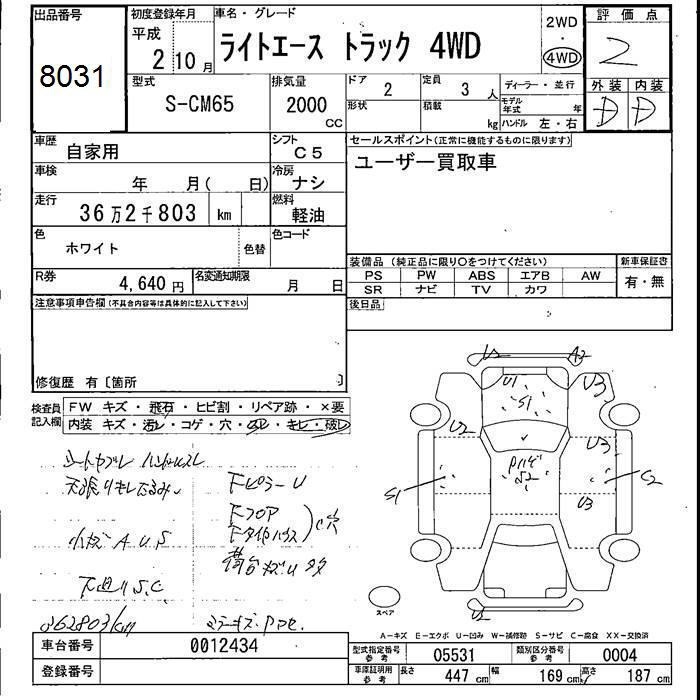 出品番号
8031
初度登録年月
平成
2 10 月
車名・グレード
ライトエース トラック 4WD
2WD
・
4WD
評価点
2
外装 内装
D D
型式
S-CM65
排気量
2000
CC
ドア
2
定員
3 人
形状
積載
kg
ディーラー・並行
モデル年式 年
ハンドル 左・右
車歴
自家用
シフト
C5
車検
年 月( 日)
冷房
ナシ
走行
36万2千803 km
燃料
軽油
色
ホワイト
色替
色コード
R券
4,640 円
名変通知期限
月 日
セールスポイント(正常に機能するものに限ります)
ユーザー買取車
装備品 (純正品に限り○をつけてください)
PS PW ABS エアB AW
SR ナビ TV カワ
新車保証書
有・無
後日品
注意事項申告欄(不具合内容等は具体的に記入して下さい)
修復歴 有〔箇所 〕
検査員記入欄
FW キズ・飛石・ヒビ割・リペア跡・×要
内装 キズ・汚レ・コゲ・穴・スレ・キレ・破レ
天張りキレたるみ
FピラーU
Fフロア
小キズ A.U.S
荷台キズU多
下廻りS.C
362803km
U2 A2
U1 S1 U3
U2 U3
S2
S1 C2
U3
U2
スペア
A-キズ E-エクボ U-凹み W-補修跡 S-サビ C-腐食 XX-交換済
車台番号
0012434
登録番号
型式指定番号 参考
05531
類別区分番号 参考
0004
車庫証明用 参考
長さ 447 cm 幅 169 cm 高さ 187 cm